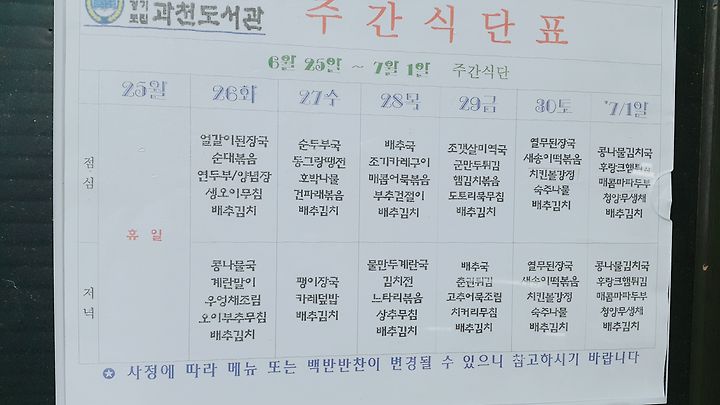 경기
도립 과천도서관
주간식단표
6월 25일 ~ 7월 1일 주간식단
25월 26화 27수 28목 29금 30토 '7/1일
점심
휴일
얼갈이된장국
순대볶음
연두부/양념장
생오이무침
배추김치
순두부국
동그랑땡전
호박나물
건파래볶음
배추김치
배추국
조기카레구이
매콤어묵볶음
부추겉절이
배추김치
조갯살미역국
군만두튀김
햄김치볶음
도토리묵무침
배추김치
열무된장국
새송이떡볶음
치킨볼강정
숙주나물
배추김치
콩나물김치국
후랑크햄튀김
매콤마파두부
청양무생채
배추김치
저녁
콩나물국
계란말이
우엉채조림
오이부추무침
배추김치
팽이장국
카레덮밥
배추김치
물만두계란국
김치전
느타리볶음
상추무침
배추김치
배추국
춘권튀김
고추어묵조림
치커리무침
배추김치
열무된장국
새송이떡볶음
치킨볼강정
숙주나물
배추김치
콩나물김치국
후랑크햄튀김
매콤마파두부
청양무생채
배추김치
✪ 사정에 따라 메뉴 또는 백반반찬이 변경될 수 있으니 참고하시기 바랍니다